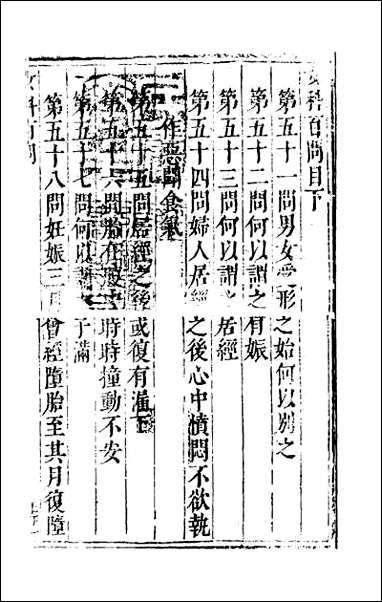 女科百問目下
第五十一問男女受形之始何以別之
第五十二問何以謂之有娠
第五十三問何以謂之居經
第五十四問婦人居經之後心中憒悶不欲執
作惡聞食氣
第五十五問居經之後或復有漏下
第五十六問胎在腹中時時撞動不安
第五十七問何以謂之子滿
第五十八問妊娠三月曾經墮胎至其月復墮
女科百問